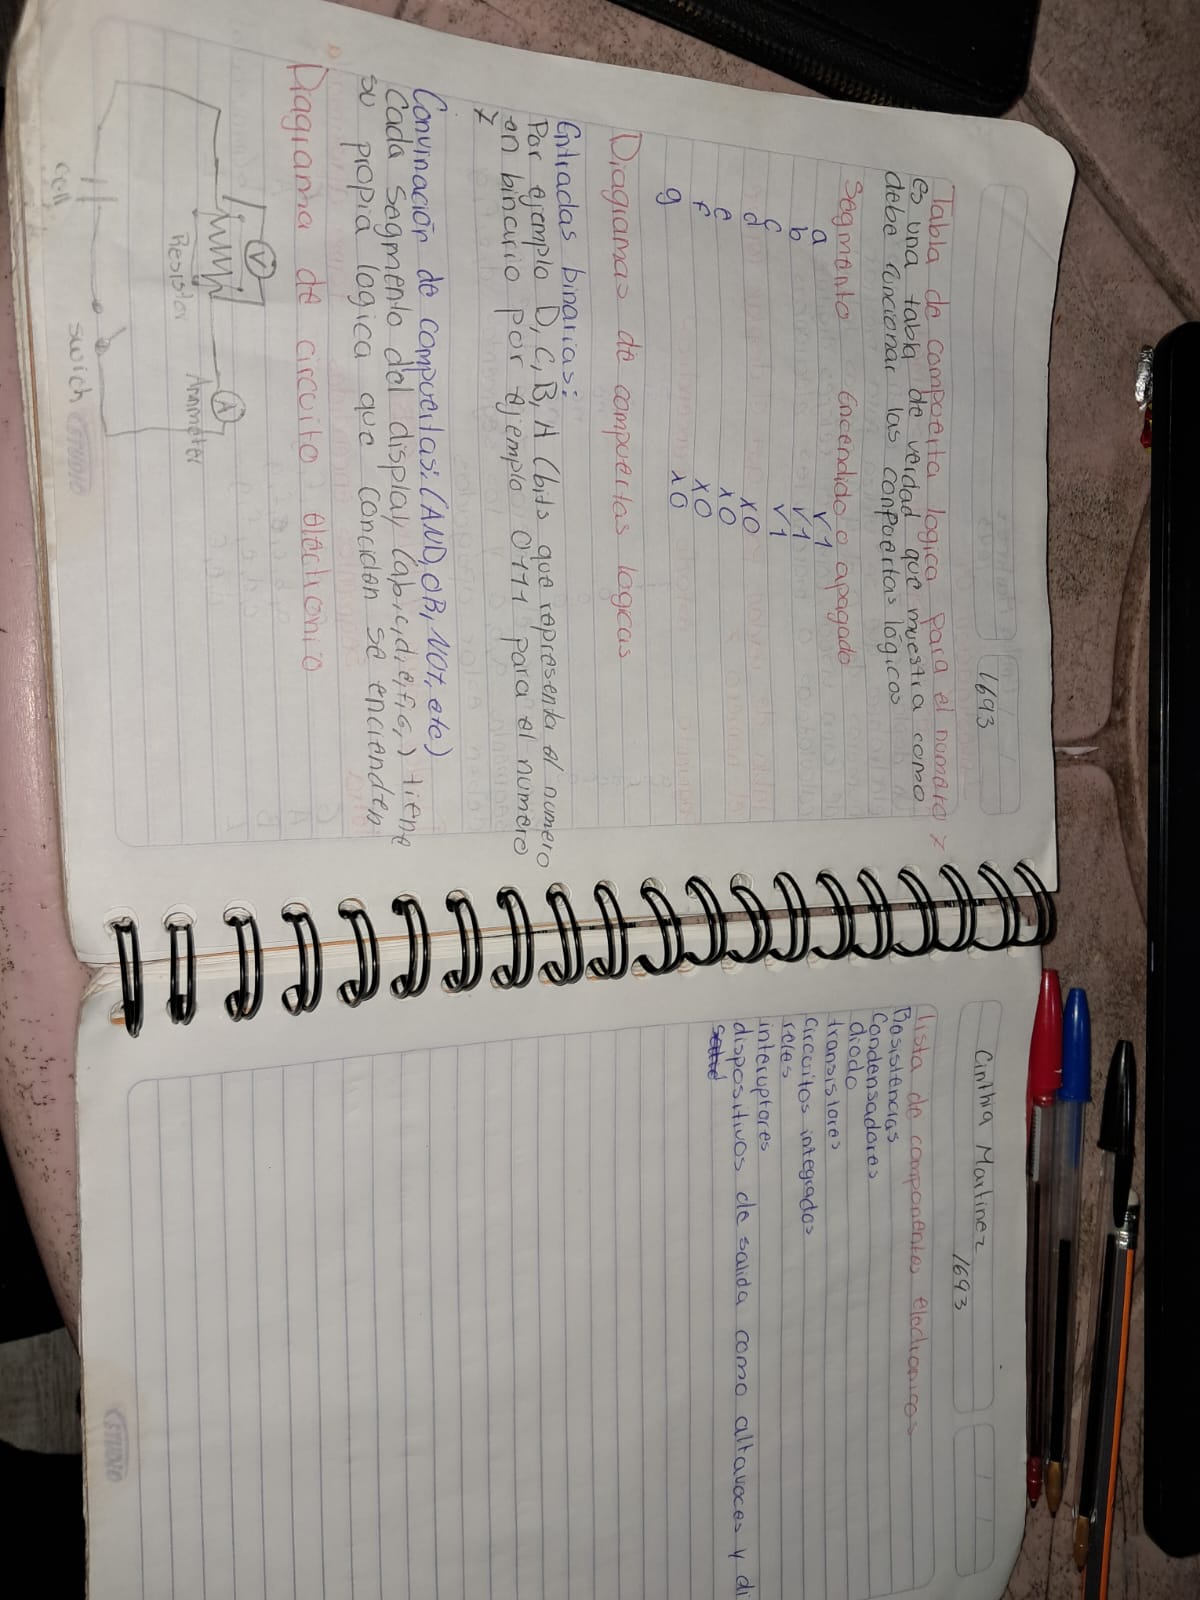 1693
Tabla de compuerta logica para el numero 7
es una tabla de verdad que muestra como
debe funcionar las compuertas lógicos
Segmento Encendido o apagado
a √1
b √1
c √1
d x0
e x0
f x0
g x0
Diagramas de compuertas logicas
Entradas binarias:
Por ejemplo D, C, B, A (bits que representa el numero
en binario por ejemplo 0111 para el numero
7
Convinación de compuertas: (AND, OR, NOT, etc)
Cada segmento del display (a,b,c,d,e,f,G,) tiene
su propia logica que condicion se encienden
Diagrama de circuito electronio
V
A
Resister
Ammeter
cell
swich
STUDIO
Cinthia Martinez
1693
lista de componentes electronicos
Resistencias
Condensadores
diodo
transistores
circuitos integrados
reles
interuptores
dispositivos de salida como altavoces y di
STUDIO